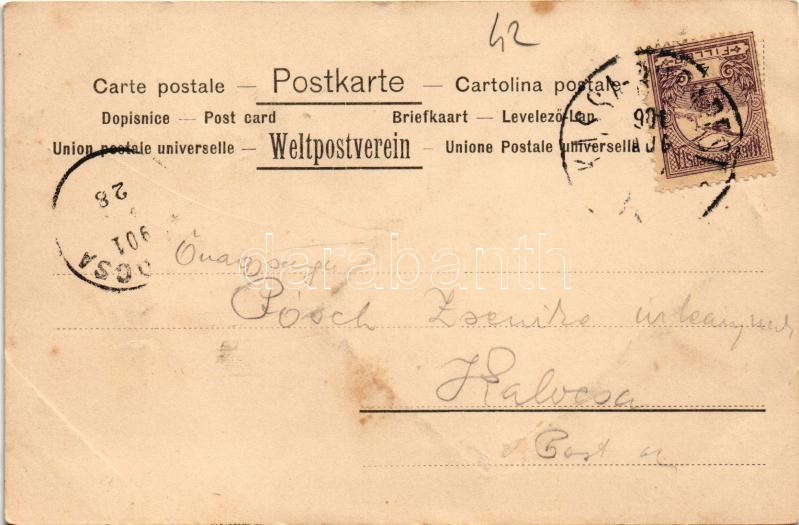 42
Carte postale — Postkarte — Cartolina postale
Dopisnice — Post card Briefkaart — Levelező-Lap
Union postale universelle — Weltpostverein — Unione Postale universelle
FILLÉR
901
AUG
28
901
OCSA
darabanth
Pösch Zsenike
Kalocsa
Pest m